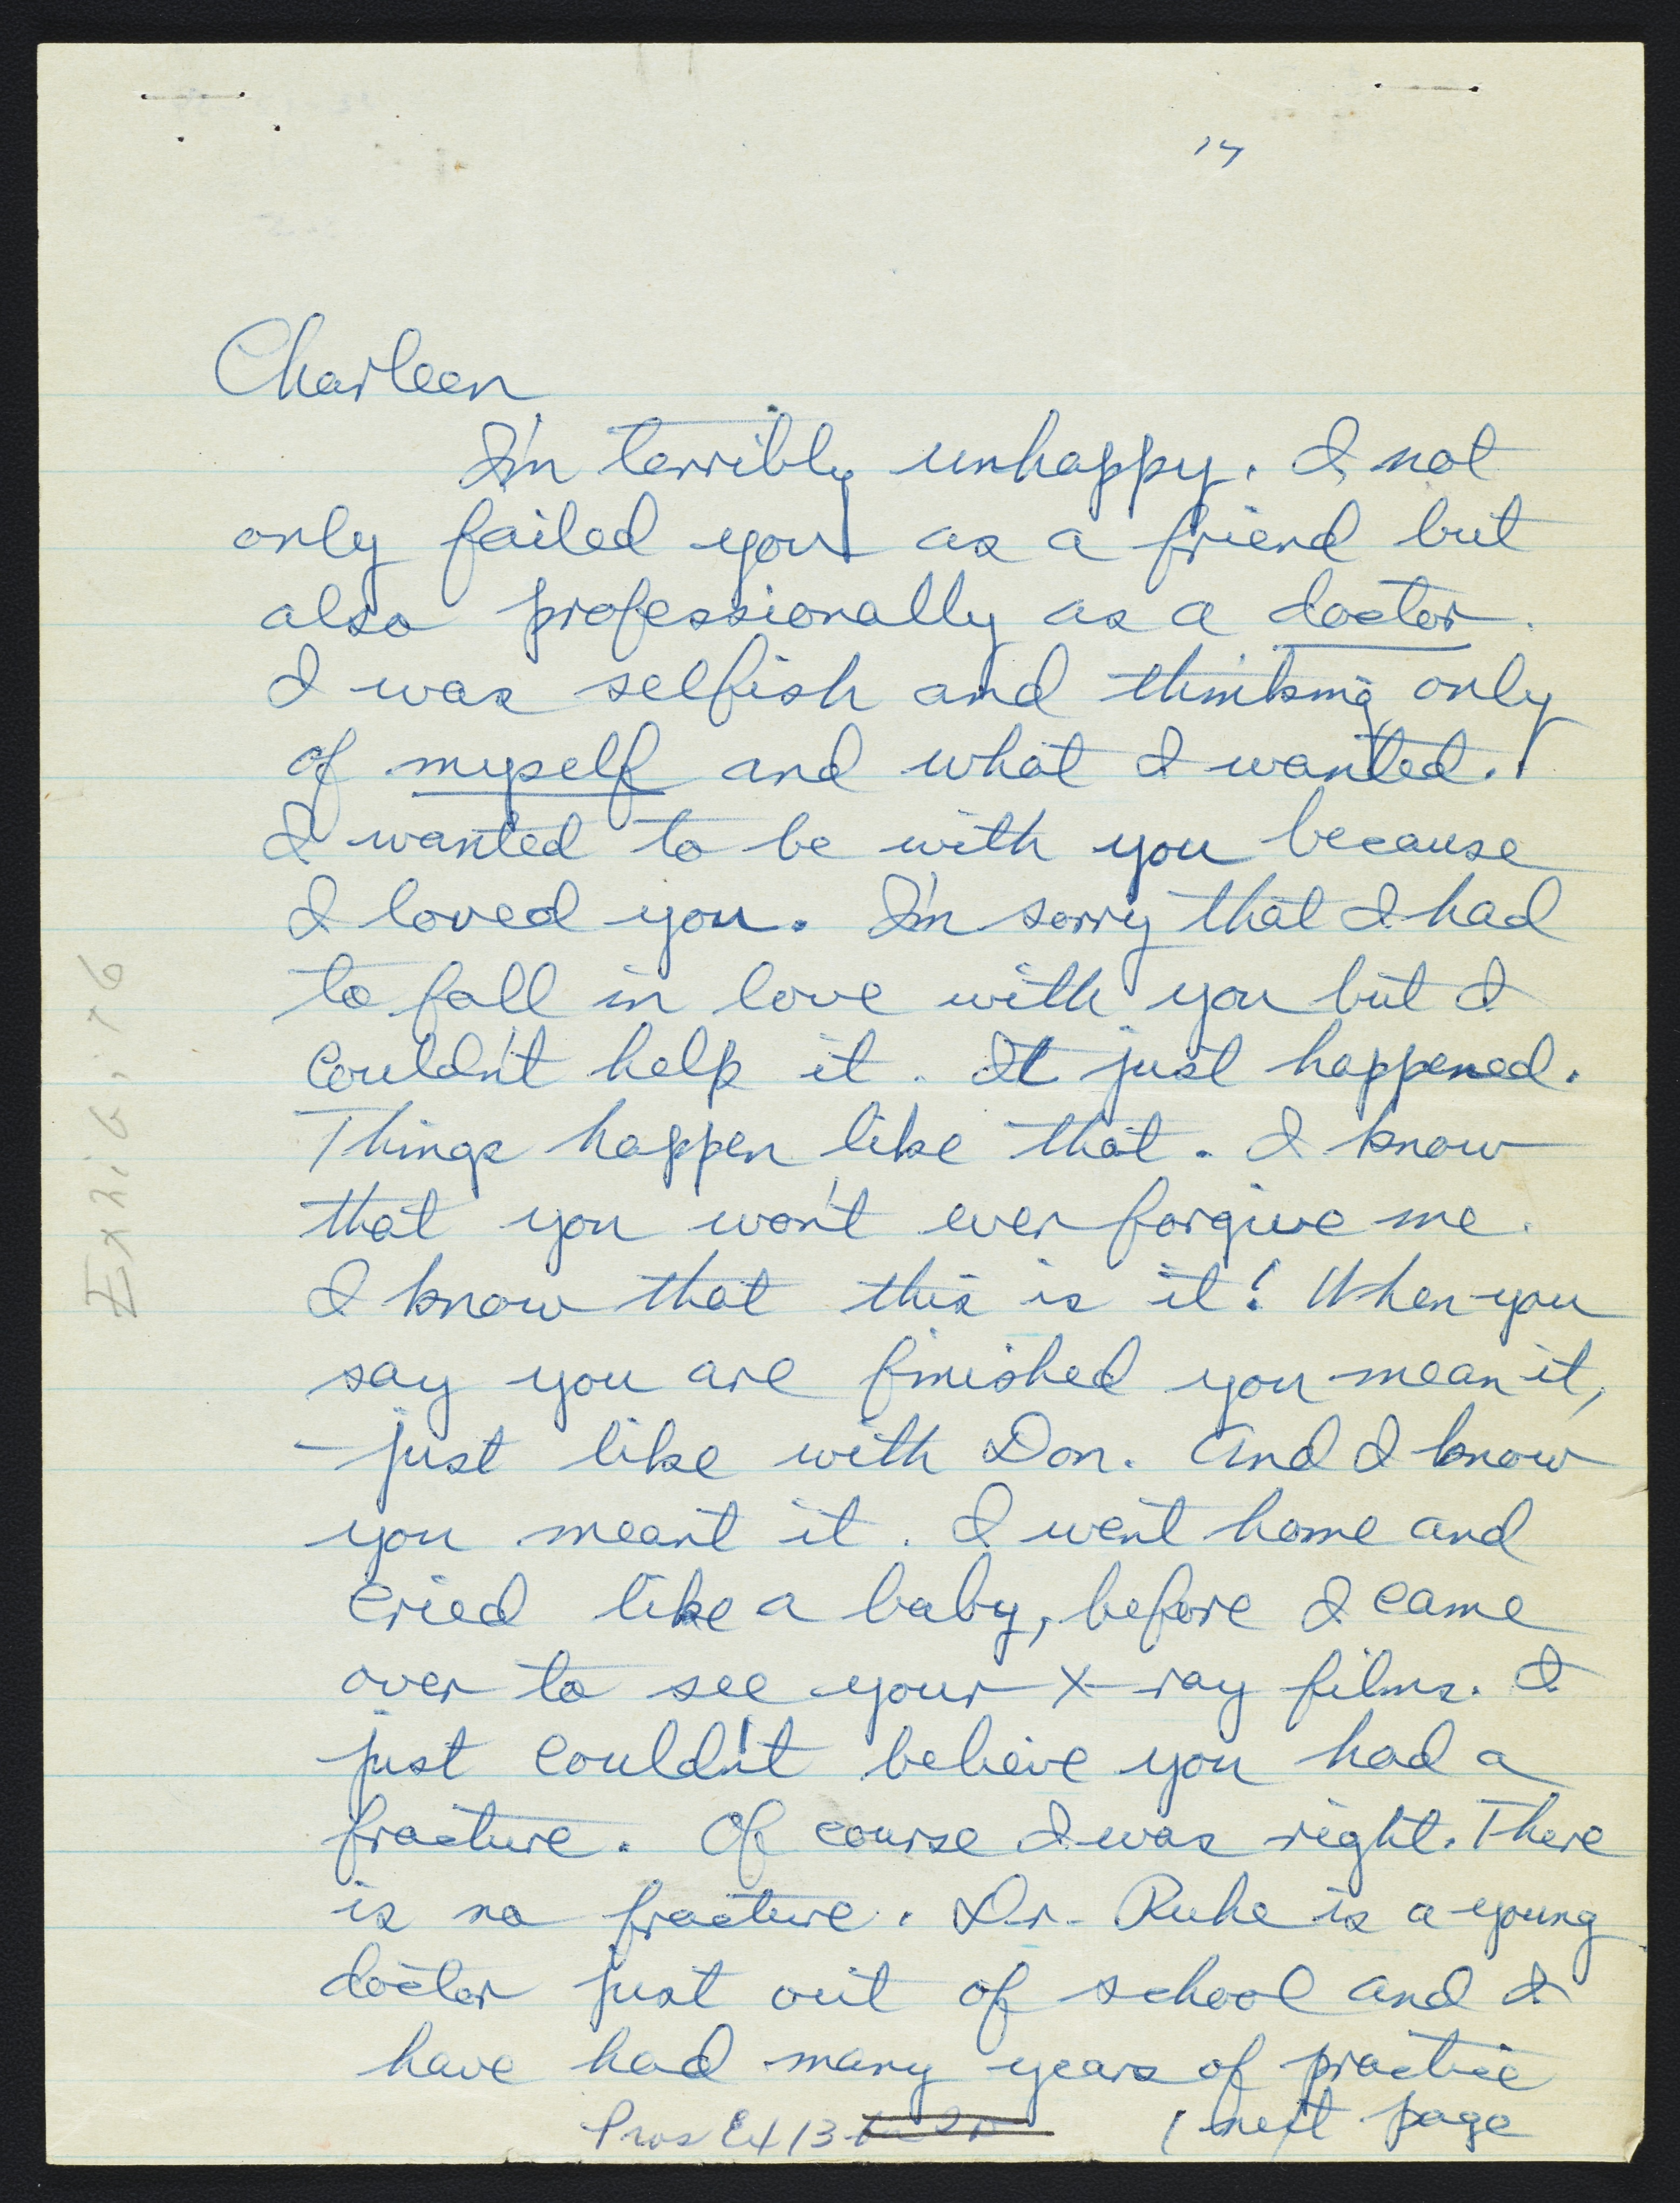 Charleen
I'm terribly unhappy. I not
only failed you as a friend but
also professionally as a doctor.
I was selfish and thinking only
of myself and what I wanted.
I wanted to be with you because
I loved you. I'm sorry that I had
to fall in love with you but I
couldn't help it. It just happened.
Things happen like that. I know
that you won't ever forgive me.
I know that this is it! When you
say you are finished you mean it,
- just like with Don. And I know
you meant it. I went home and
cried like a baby, before I came
over to see your X-ray films. I
just couldn't believe you had a
fracture. Of course I was right. There
is no fracture. Dr. Ruhe is a young
doctor just out of school and I
have had many years of practice
( next page
Pros Ex 13
Exhibit 6